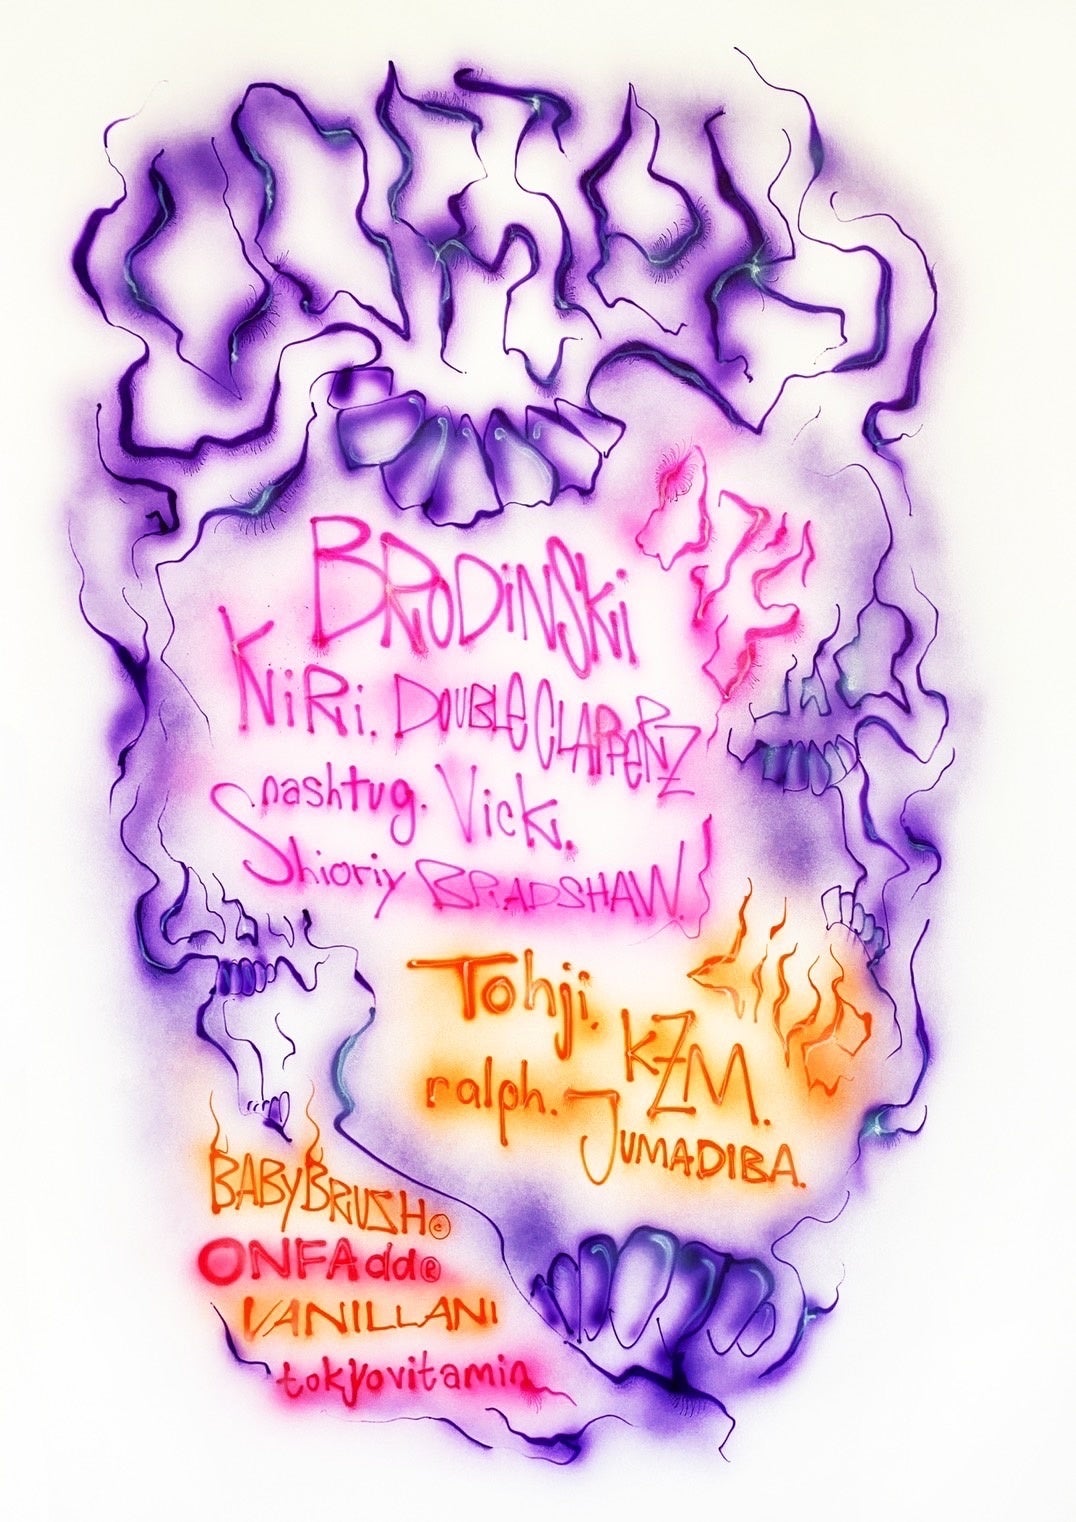 BRODiNSKi
KiRi. DOUBLE CLAPPERZ
nashtug. Vick.
Shioriy BRADSHAW.
Tohji.
KZM.
ralph.
JUMADIBA.
BABYBRUSH©
ONFAdd®
VANILLANI
tokyovitamin